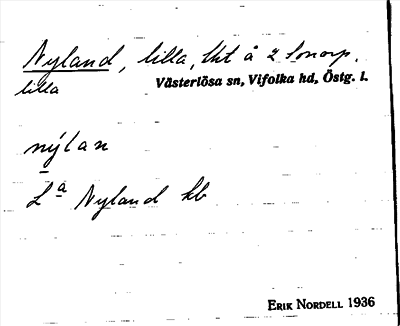 Nyland, lilla, lht å 2 Snorp.
lilla
Västerlösa sn, Vifolka hd, Östg. l.
nýlan
La Nyland kb
ERIK NORDELL 1936